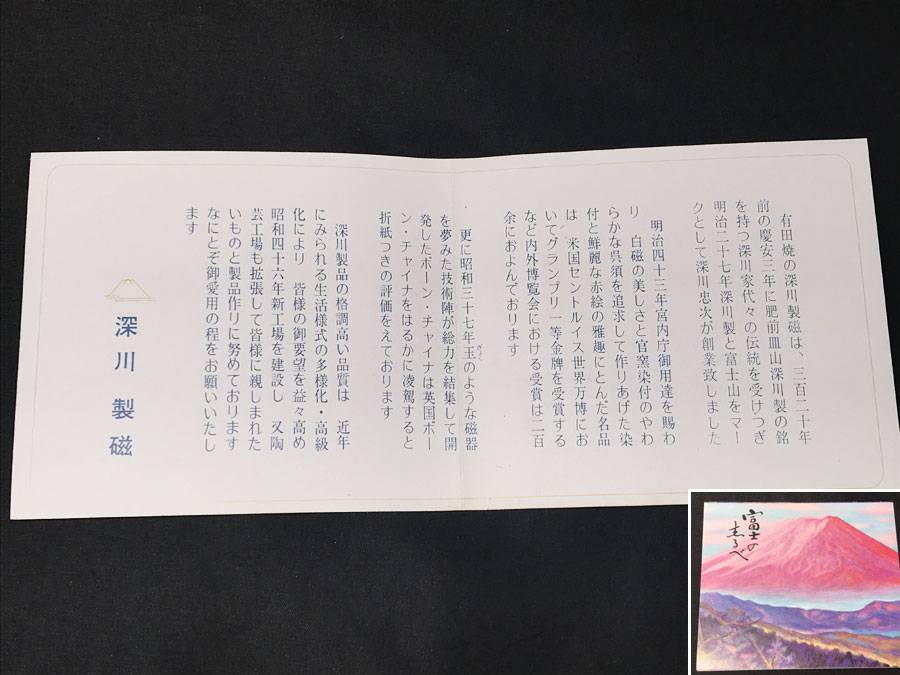 有田焼の深川製磁は、三百二十年
前の慶安三年に肥前皿山深川製の銘
を持つ深川家代々の伝統を受けつぎ
明治二十七年深川製と富士山をマー
クとして深川忠次が創業致しました
明治四十三年宮内庁御用達を賜わ
り 白磁の美しさと官窯染付のやわ
らかな呉須を追求して作りあげた染
付と鮮麗な赤絵の雅趣にとんだ名品
は 米国セントルイス世界万博にお
いてグランプリ一等金牌を受賞する
など内外博覧会における受賞は二百
余におよんでおります
更に昭和三十七年玉のような磁器
を夢みた技術陣が総力を結集して開
発したボーン・チャイナは英国ボー
ン・チャイナをはるかに凌駕すると
折紙つきの評価をえております
深川製品の格調高い品質は 近年
にみられる生活様式の多様化・高級
化により 皆様の御要望を益々高め
昭和四十六年新工場を建設し 又陶
芸工場も拡張して皆様に親しまれた
いものと製品作りに努めております
なにとぞ御愛用の程をお願いいたし
ます
深川製磁
富士の
志るべ